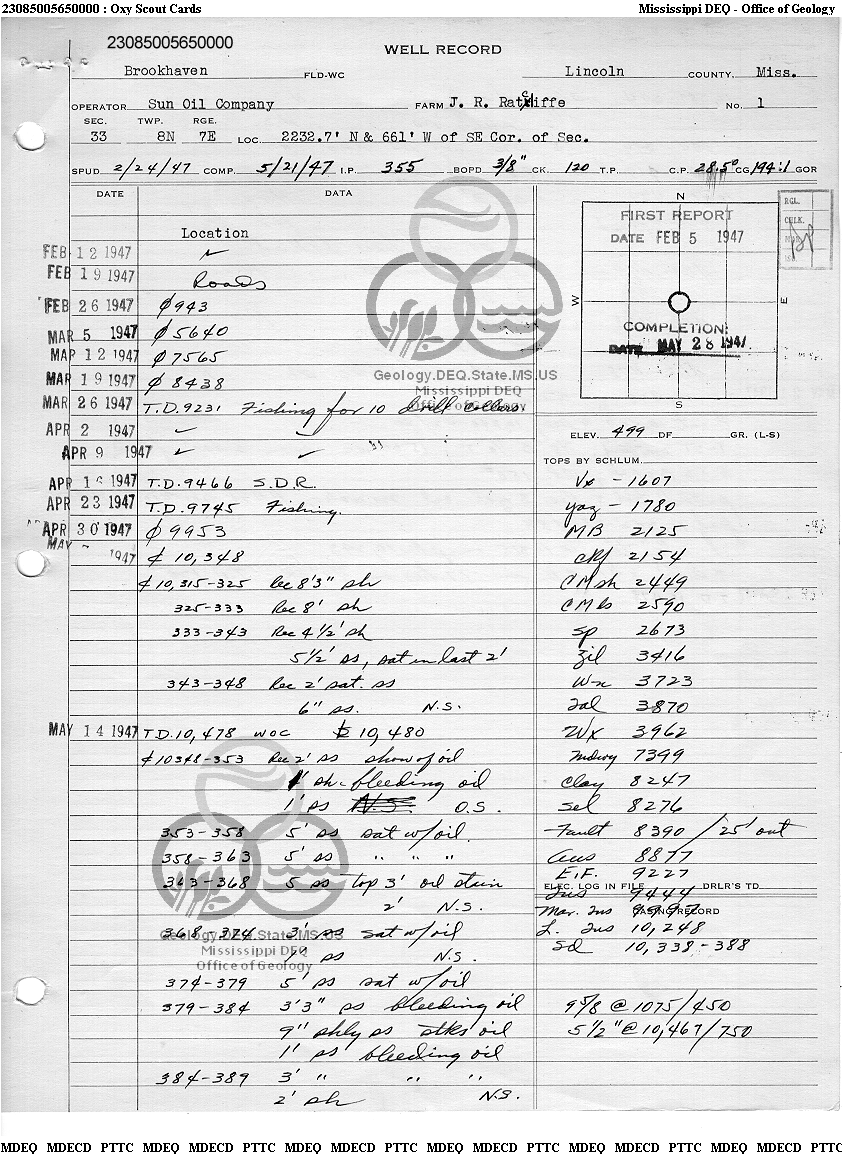 23085005650000 : Oxy Scout Cards
Mississippi DEQ - Office of Geology
23085005650000
WELL RECORD
Brookhaven FLD-WC Lincoln COUNTY, Miss.
OPERATOR Sun Oil Company FARM J. R. Ratcliffe NO. 1
SEC. TWP. RGE.
33 8N 7E LOC. 2232.7' N & 661' W of SE Cor. of Sec.
SPUD 2/24/47 COMP. 5/21/47 I.P. 355 BOPD 3/8" CK. 120 T.P. C.P. 28.5° CG 194:1 GOR
DATE DATA
Location
FEB 12 1947 ✓
FEB 19 1947 Roads
FEB 26 1947 ∅ 943
MAR 5 1947 ∅ 5640
MAR 12 1947 ∅ 7565
MAR 19 1947 ∅ 8438
MAR 26 1947 T.D. 9231 Fishing for 10 drill collars
APR 2 1947 ✓ ✓
APR 9 1947 ✓ ✓
APR 16 1947 T.D. 9466 S.D.R.
APR 23 1947 T.D. 9745 Fishing.
APR 30 1947 ∅ 9953
MAY 1947 ¢ 10,348
¢ 10,315-325 Rec 8'3" sh
325-333 Rec 8' sh
333-343 Rec 4 1/2' sh
5 1/2' ss, sat in last 2'
343-348 Rec 2' sat. ss
6" ss. N.S.
MAY 14 1947 T.D. 10,478 WOC 10,480
¢ 10348-353 Rec 2' ss show of oil
1' sh - bleeding oil
1' ss N.S. O.S.
353-358 5' ss sat w/oil
358-363 5' ss " " "
363-368 5 ss top 3' oil stain
2' N.S.
368-374 3' ss sat w/oil
ss N.S.
374-379 5' ss sat w/oil
379-384 3'3" ss bleeding oil
9" shly ss stks oil
1' ss bleeding oil
384-389 3' " " "
2' sh N.S.
N
W
E
S
FIRST REPORT
DATE FEB 5 1947
COMPLETION:
DATE MAY 28 1947
RGL.
CHK.
ELEV. 499 DF GR. (L-S)
TOPS BY SCHLUM.
Vx - 1607
yaz - 1780
MB 2125
ckf 2154
CMsh 2449
CMls 2590
sp 2673
zil 3416
Wx 3723
Sal 3870
Wx 3962
mdwy 7399
Clay 8247
Sel 8276
Fault 8390 / 25' out
Aus 8877
E.F. 9227
ELEC. LOG IN FILE DRLR'S TD
Tus 9444
Mar. Tus
CASING RECORD
L. Tus 10,248
Sd 10,338-388
9 5/8 @ 1075/450
5 1/2" @ 10,467/750
Geology.DEQ.State.MS.US
Mississippi DEQ
Office of Geology
Geology.DEQ.State.MS.US
Mississippi DEQ
Office of Geology
MDEQ MDECD PTTC MDEQ MDECD PTTC MDEQ MDECD PTTC MDEQ MDECD PTTC MDEQ MDECD PTTC MDEQ MDECD PTTC